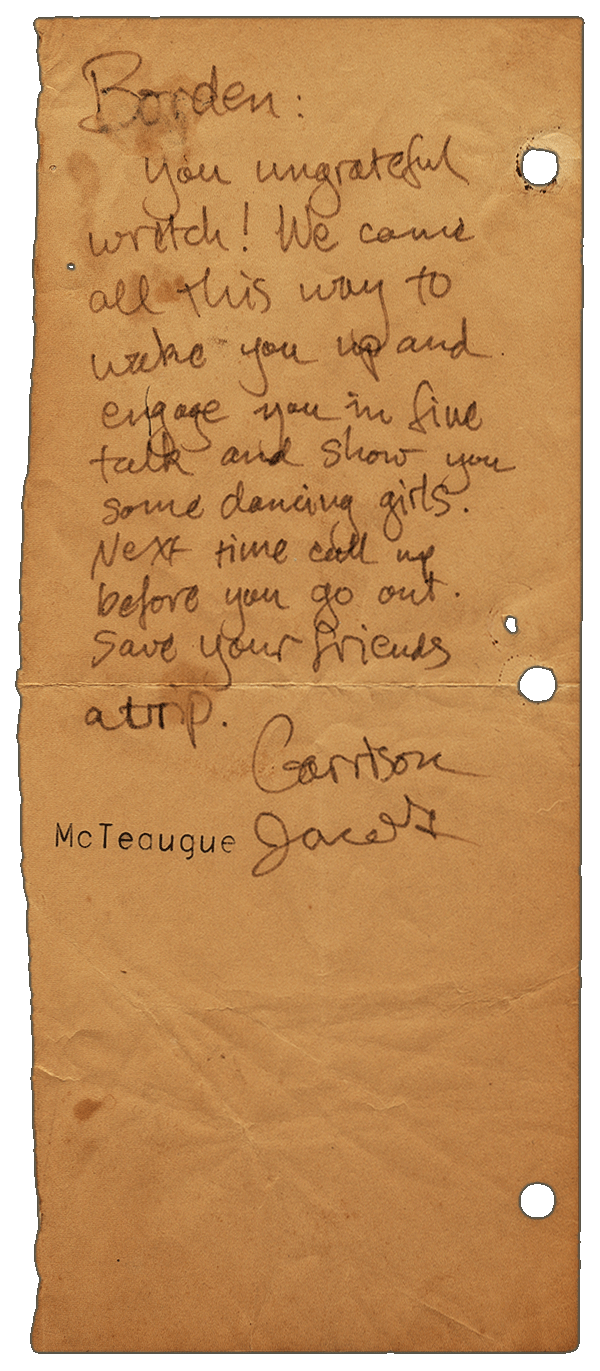 Borden:
you ungrateful
wretch! We came
all this way to
wake you up and
engage you in fine
talk and show you
some dancing girls.
Next time call up
before you go out.
Save your friends
a trip.
Garrison
McTeaugue Jacobs